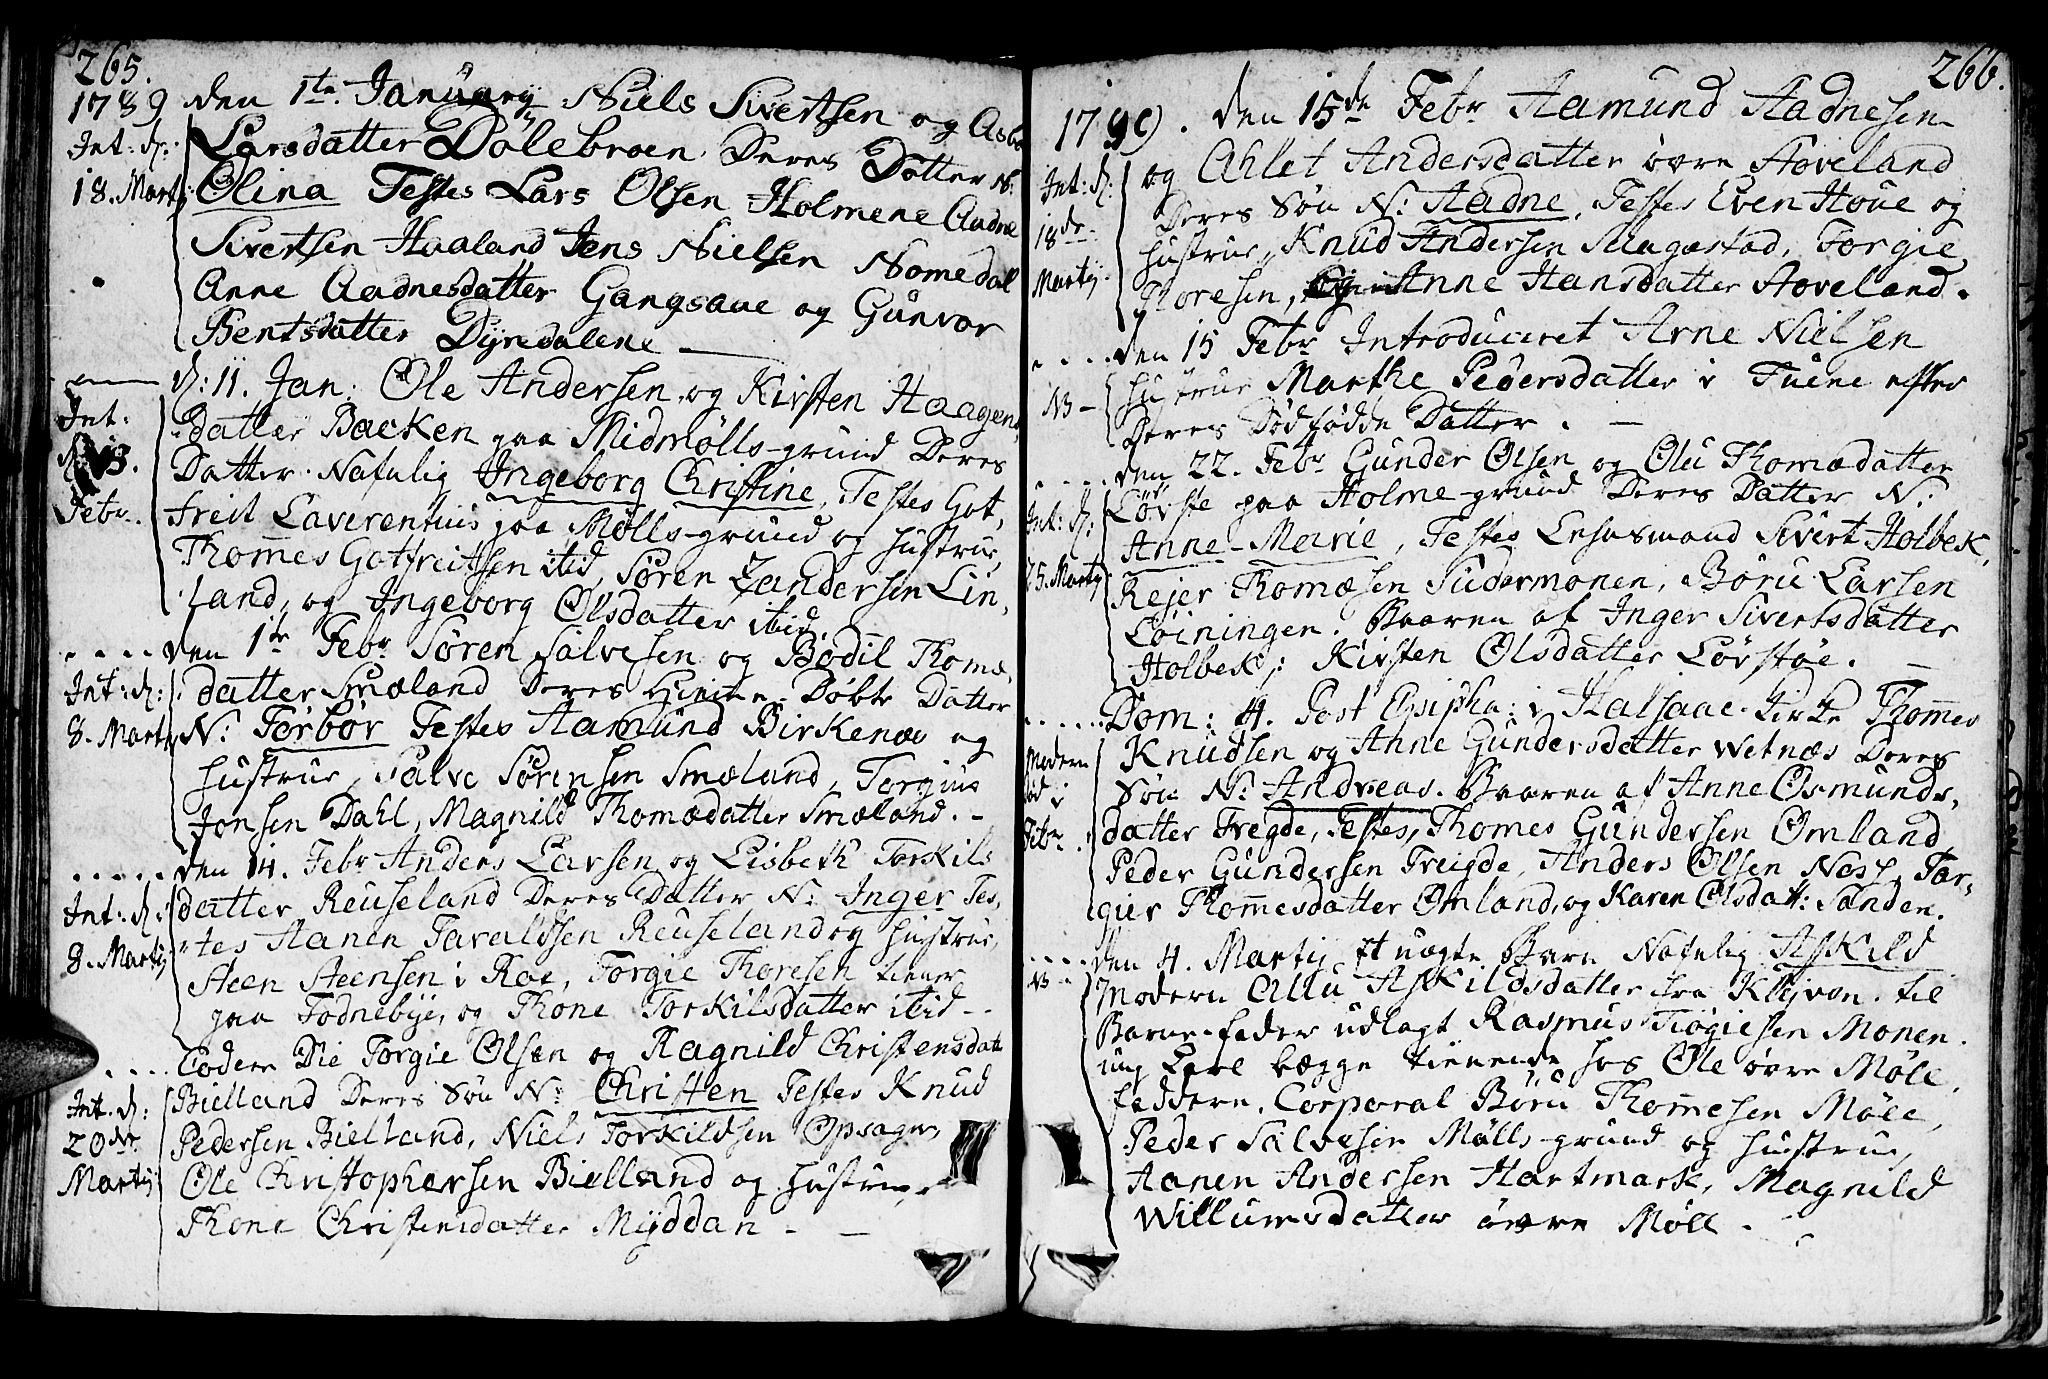 265.
1789 den 1te January Niels Sivertsen og Asb
Int: d: Larsdatter Dölebroen. Deres Datter N:
18. Marty Olina Testes Lars Olsen Holmene Aadne
Sivertsen Haaland Jens Nielsen Nomedal
Anne Aadnesdatter Gangsaae og Gunvor
Bentsdatter Dyredalene
d: 11. Jan: Ole Andersen og Kirsten Haagens
Int: datter Backen paa Midmölls-grund Deres
d: 13. Datter Nafnlig Ingeborg Christine, Testes Got,
Febr. freit Laverentius paa Mölls-grund og hustrue,
Thom̄es Gotfreitsen itid, Sören Zandersen Lin,
land, og Ingeborg Olsdatter ibid
den 1te Febr Sören Salvesen og Bodil Thomæ,
Int: d: datter Smæland Deres Döbte Datter
8. Marty N: Torbör Testes Aamund Birkenæs og
hustrue, Salve Sörensen Smæland, Torgius
Jonsen Dahl, Magnild Thomædatter Smæland.
den 14. Febr Anders Larsen og Lisbeth Torkils
Int: d: datter Reuseland Deres Datter N: Inger Tes,
8. Marty tes Aanen Taraldsen Reuseland og hustrue,
Steen Steensen i Roe, Torgie Thoresen tiener
paa Todnebye, og Thone Torkilsdatter itid
Eodem Die Torgie Olsen og Ragnild Christensdatt
Int. d: Bielland Deres Sön N: Christen Testes Knud
20de Pedersen Bielland, Niels Torkildsen Opsager,
Marty Ole Christophersen Bielland og hustrue,
Thone Christensdatter Myddan
266.
1789. den 15de Febr Aamund Aadnesen
Int: d: og Ahlet Andersdatter övre Hoveland
18de Deres Sön N: Aadne, Testes Even Houe og
Marty hustrue, Knud Andersen Skagestad, Torgie
Thoresen, Anne Hansdatter Hoveland.
den 15 Febr Introduceret Arne Nielsen
NB hustrue Marthe Pedersdatter i Tuene efter
Deres Dödfödde Datter.
den 22. Febr Gunder Olsen og Olu Thomædatter
Int: d: Lövste paa Holme-grund Deres Datter N:
Anne-Marie, Testes Lensmand Sivert Holbek,
25. Marty Rejer Thomæsen Sudermonen, Böru Larsen
Löiningen. Baaren af Inger Sivertsdatter
Holbek; Kirsten Olsdatter Lövstöe.
Dom: 4. Post Epipha: i Halsaae Kirke Thom̄es
Modern Knudsen og Anne Gundersdatter Wetnæs Deres
död i Sön N: Andreas. Baaren af Anne Osmunds,
Febr. datter Tregde, Testes, Thomes Gundersen Omland
Peder Gundersen Treigde, Anders Olsen Næss, Tar,
gier Thom̄esdatter Omland, og Karen Olsdatt: Sanden.
den 4. Marty Et uægte Barn Nafnlig Askild
NB Modern Allu Askildsdatter fra Kleven. til
Barne-fader udlagt Rasmus Tiögiesen Monen.
ung Karl begge tienende hos Ole övre Möll,
faddere, Corporal Böru Thom̄esen Möll,
Peder Salvesen Mölls grund og hustrue,
Aanen Andersen Hartmark, Magnild
Willumsdatter övre Möll.